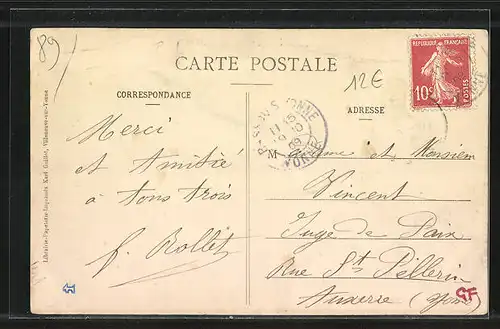 89
CARTE POSTALE
12€
RÉPUBLIQUE FRANÇAISE
10c
POSTES
CORRESPONDANCE
ADRESSE
YONNE
11 15
9 10
09
YONNE
Merci
et Amitié
à tous trois
f. Rollit
M adame et Monsieur
Vincent
Juge de Paix
Rue St Pèllerin
Auxerre (Yonne)
Librairie-Papeterie-Imprimerie Karl Guillot, Villeneuve-sur-Yonne